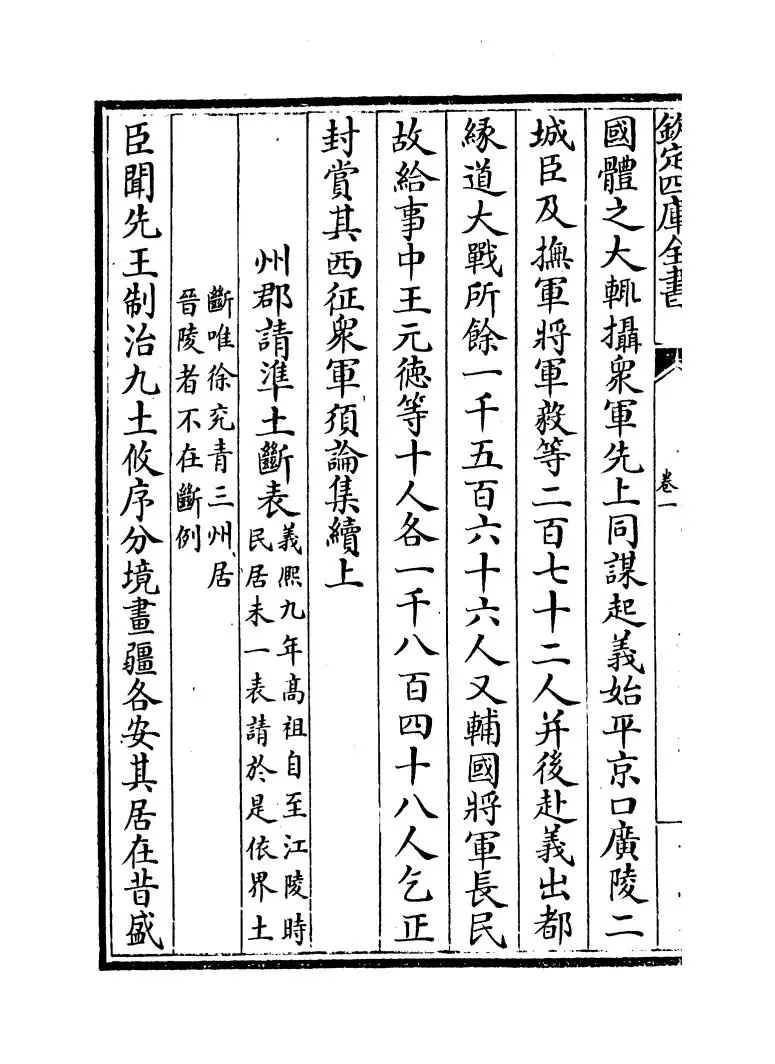 欽定四庫全書
卷一
國體之大輒攝衆軍先上同謀起義始平京口廣陵二
城臣及撫軍將軍毅等二百七十二人并後赴義出都
縁道大戰所餘一千五百六十六人又輔國將軍長民
故給事中王元德等十人各一千八百四十八人乞正
封賞其西征衆軍須論集續上
州郡請準土斷表
義熈九年高祖自至江陵時
民居未一表請於是依界土
斷唯徐兖青三州居
晉陵者不在斷例
臣聞先王制治九土攸序分境畫疆各安其居在昔盛